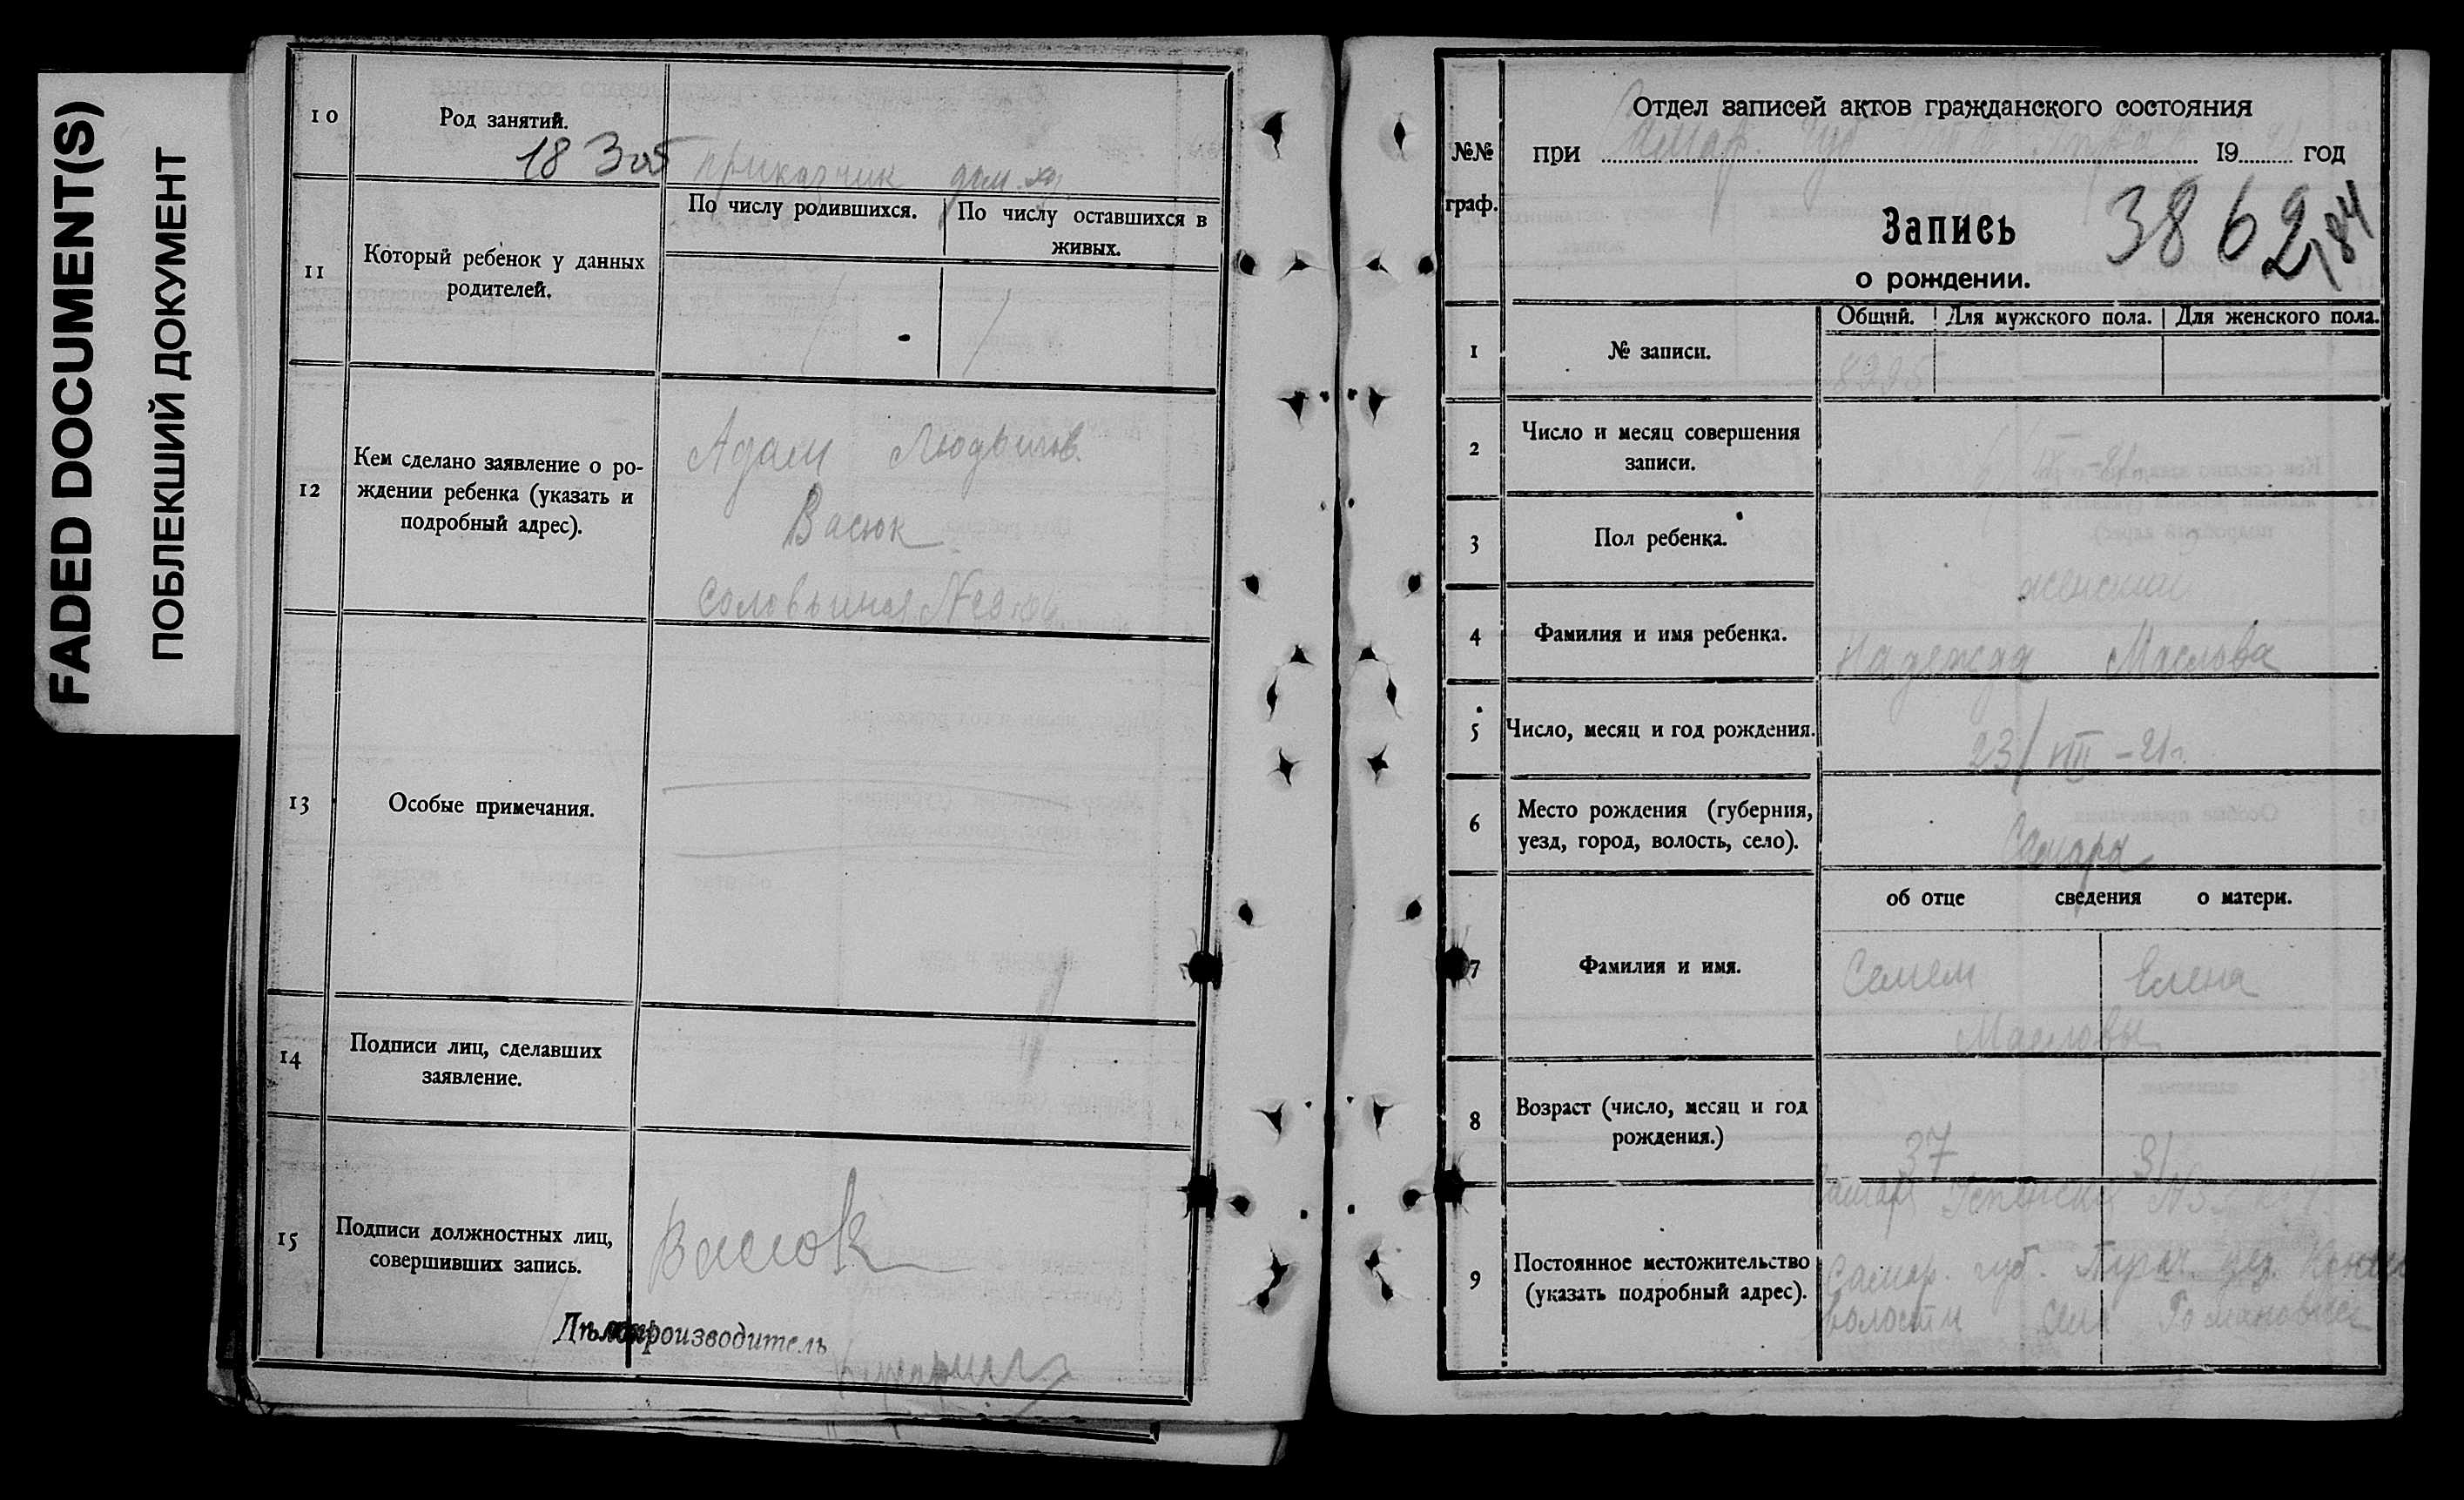 FADED DOCUMENT(S)
ПОБЛЕКШИЙ ДОКУМЕНТ
10
Род занятий.
18 305
приказчик дом.
11
Который ребенок у данных
родителей.
По числу родившихся.
По числу оставшихся в
живых.
12
Кем сделано заявление о ро-
ждении ребенка (указать и
подробный адрес).
Адам Людвигов.
Васюк
13
Особые примечания.
14
Подписи лиц, сделавших
заявление.
15
Подписи должностных лиц,
совершивших запись.
Васюк
Делопроизводитель
№№
граф.
Отдел записей актов гражданского состояния
при Самар. Губ. 19 год
Запись
о рождении.
3862
184
1
№ записи.
Общий.
Для мужского пола.
Для женского пола.
2
Число и месяц совершения
записи.
3
Пол ребенка.
женский
4
Фамилия и имя ребенка.
Надежда Маслова
5
Число, месяц и год рождения.
23/VIII-21г.
6
Место рождения (губерния,
уезд, город, волость, село).
Самара
об отце сведения о матери.
7
Фамилия и имя.
Семен
Елена
Масловы
8
Возраст (число, месяц и год
рождения.)
37
31
9
Постоянное местожительство
(указать подробный адрес).
Самар.
Самар. губ.
волости села Романовки